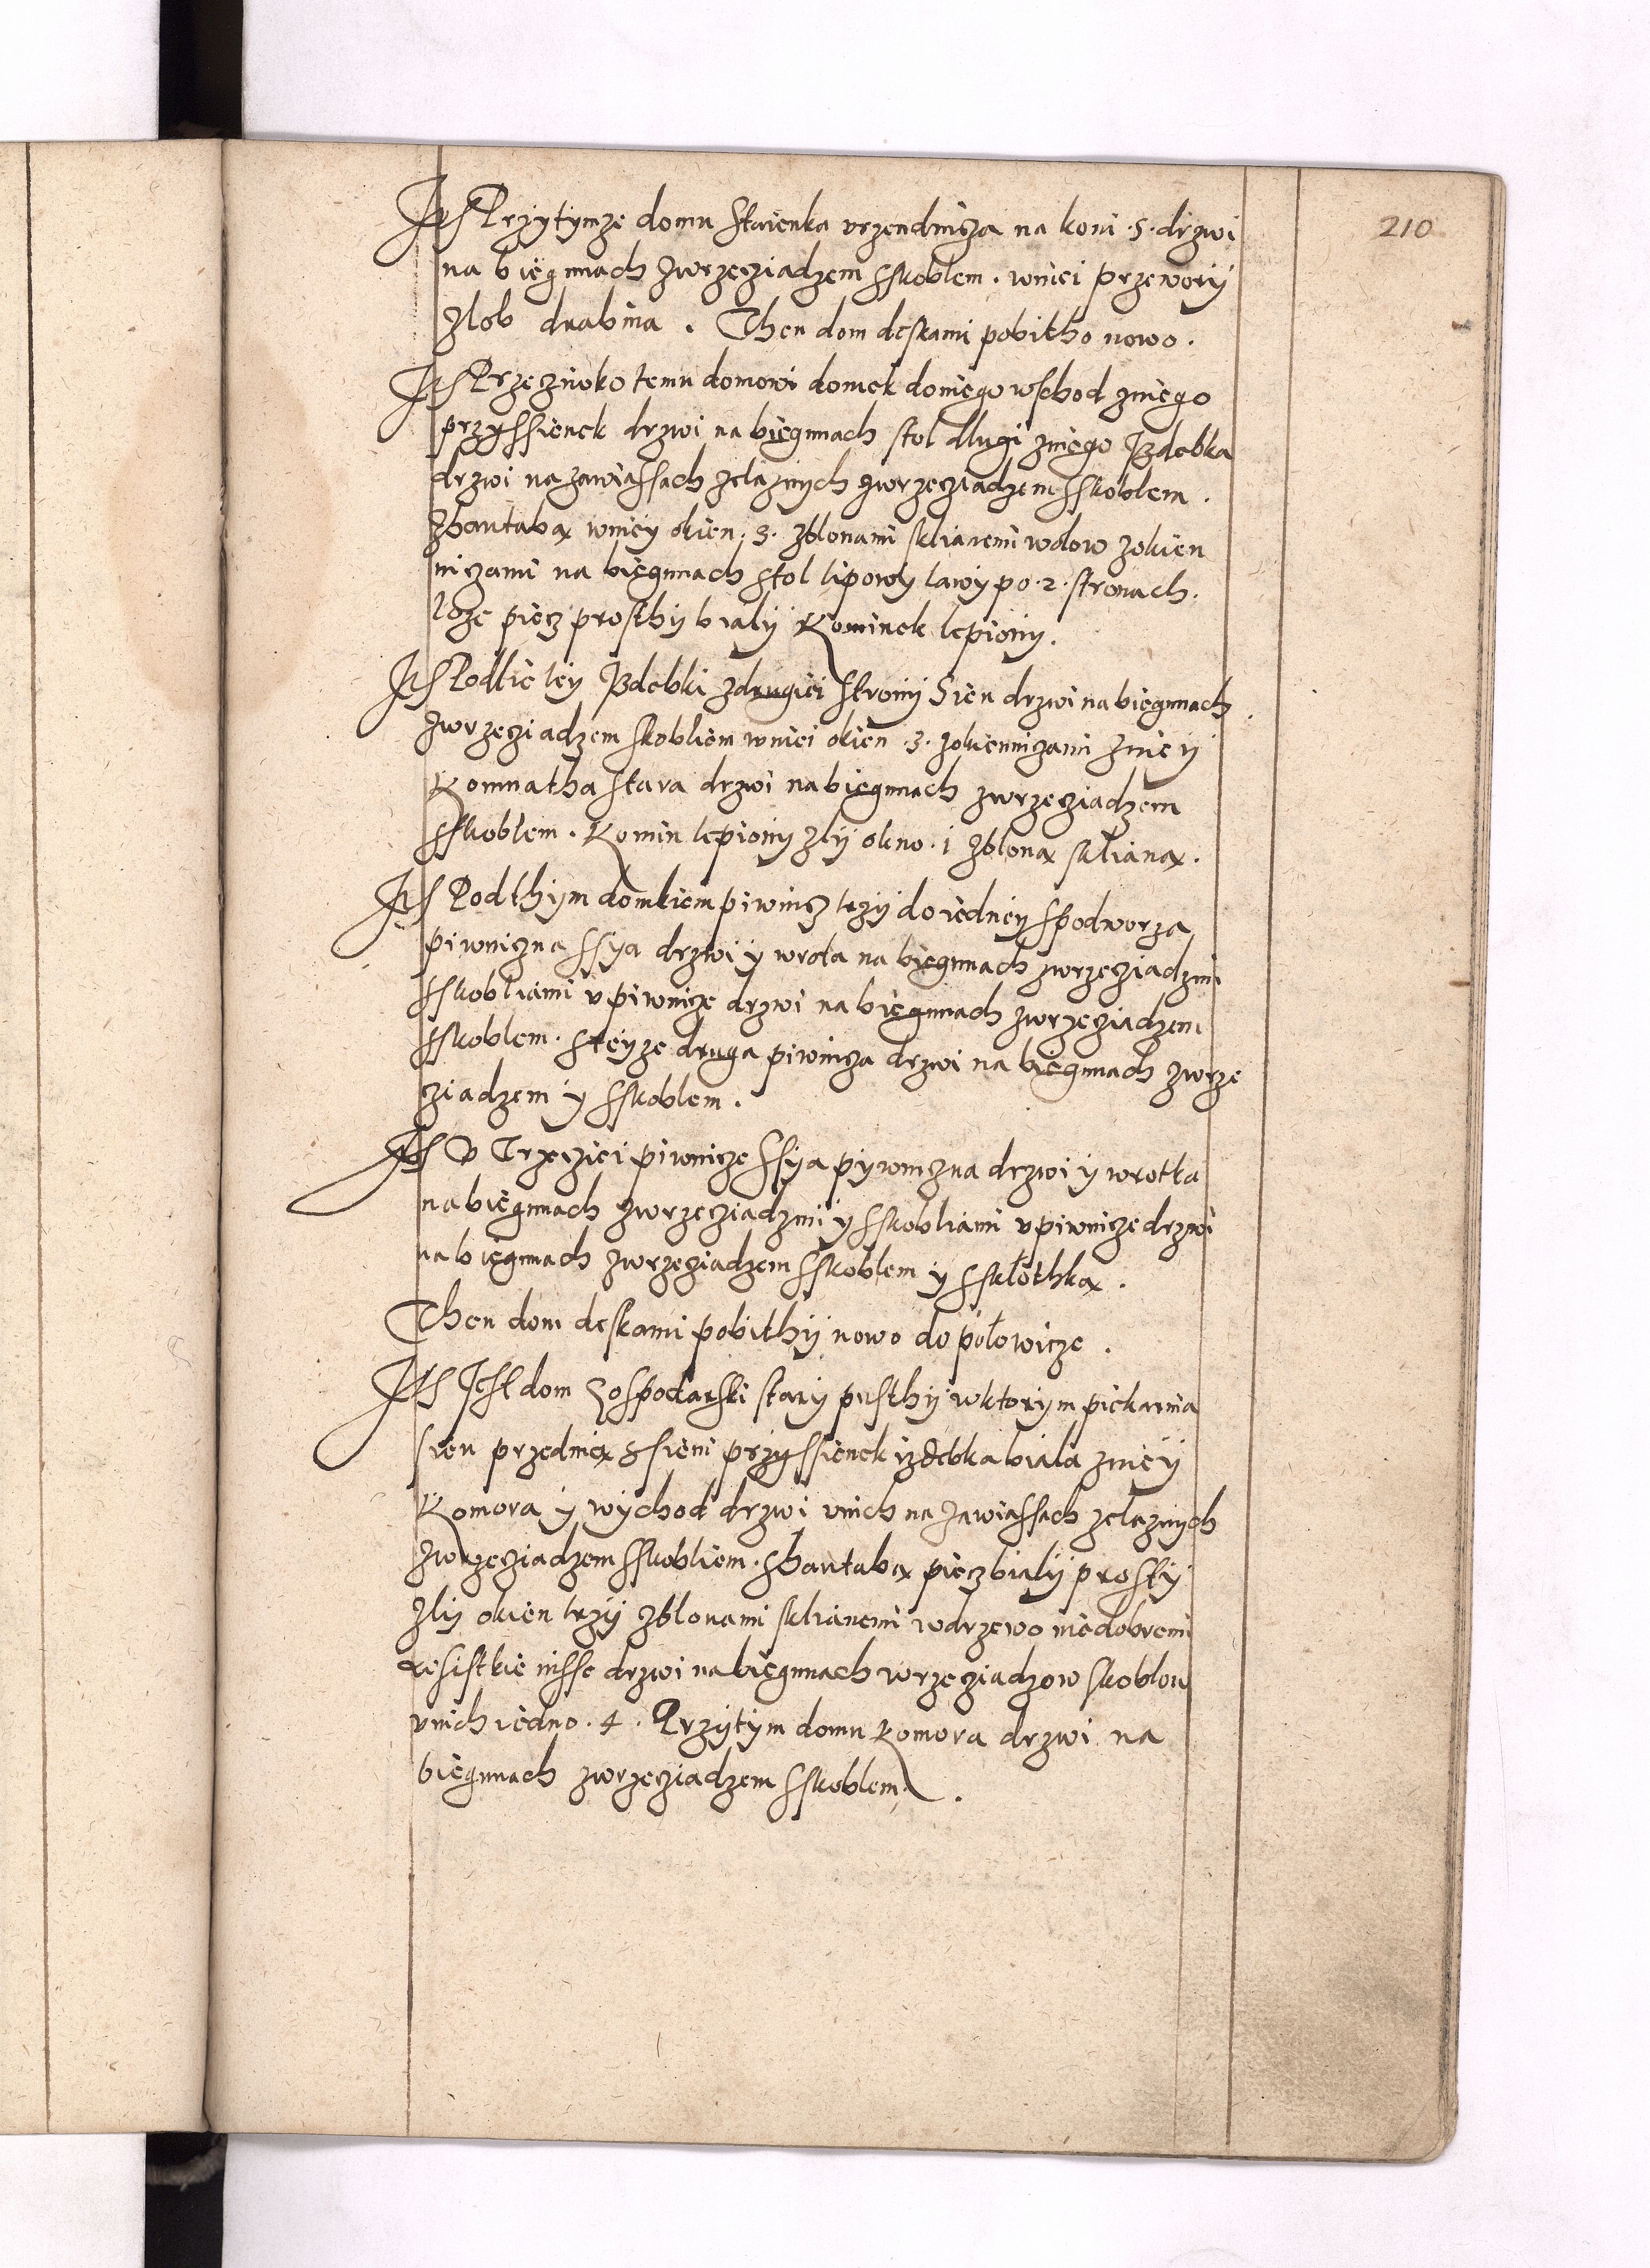 210
It Przytymze domu staienka vrzendnicza na koni .5. drzwi
na biegunach zwrzecziadzem sskoblem . wniei przewory
zlob drabina . Then dom deskami pobitho nowo .
It Przecziwko temu domowi domek doniego wschod zniego
przyssienek drzwi na biegunach stol dlugi zniego Izdebka
drzwi na zawiassach zelaznych zwrzecziadzem sskoblem .
zhantaba wniey okien . 3 . zblonami sklianemi wolow zokien
niczami na biegunach stol lipowy lawy po .2. stronach .
loze piecz prosthy bialy Kominek lepiony .
It Podlie tey Izdebki zdrugiei strony Sien drzwi na biegunach
zwrzecziadzem skobliem wniei okien .3. zokienniczami zniey
Komnatha stara drzwi na biegunach zwrzecziadzem
sskoblem . Komin lepiony zly okno . 1 zblona skliana .
It Pod thym domkiem piwnicz trzy do iedney spodworza
piwniczna ssya drzwi y wrota na biegunach zwrzecziadzmi
sskobliami v piwnicze drzwi na biegunach zwrzecziadzem
sskoblem . steyze druga piwnicza drzwi na biegunach zwrze
cziadzem y sskoblem .
It V Trzecziei piwnicze ssya pywniczna drzwi y wrotka
na biegunach zwrzecziadzmi y sskobliami v piwnicze drzwi
na biegunach zwrzecziadzem sskoblem y sskłothka .
Then dom deskami pobithy nowo do połowicze .
It Jest dom Gospodarski stary pusthy wktorym piekarnia
sien przednia ssieni przyssienek izdebka biala zniey
Komora y wychod drzwi vnich na zawiassach zelaznych
zwrzecziadzem sskobliem . shantaba piecz bialy prosty
zly okien trzy zblonami sklianemi wdrzewo niedobremi
wssistkie insse drzwi na biegunach wrzecziadzow skoblow
vnich iedno . 4 . Przytym domu Komora drzwi na
biegunach zwrzecziadzem sskoblem .